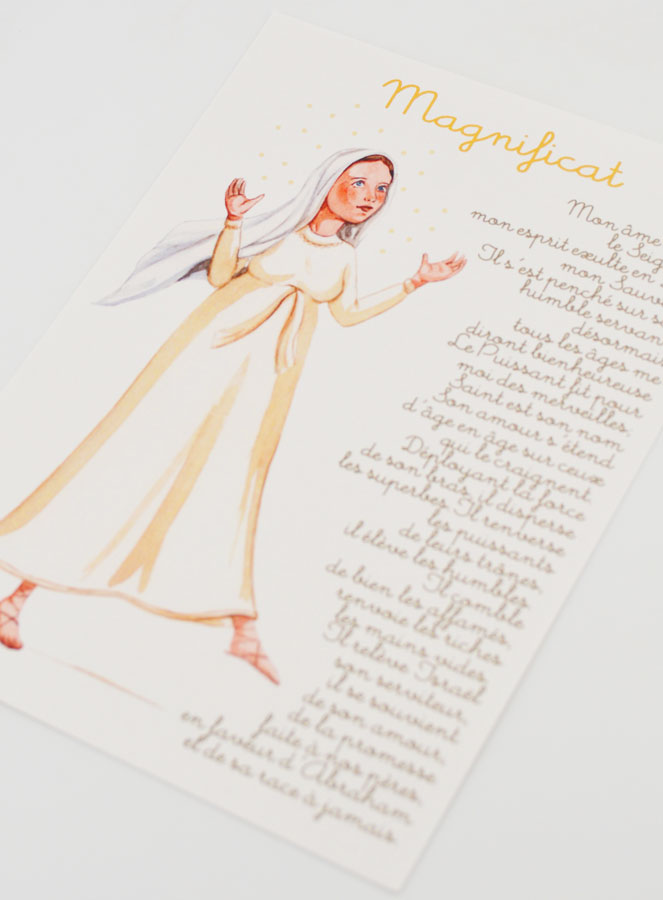 Magnificat
Mon âme
le Seig
mon esprit exulte en
mon Sauv
Il s'est penché sur s
humble servan
désormai
tous les âges me
diront bienheureuse
Le Puissant fit pour
moi des merveilles;
Saint est son nom
Son amour s'étend
d'âge en âge sur ceux
qui le craignent
Déployant la force
de son bras, il disperse
les superbes. Il renverse
les puissants
de leurs trônes,
il élève les humbles.
Il comble
de bien les affamés,
renvoie les riches
les mains vides.
Il relève Israël
son serviteur,
il se souvient
de son amour,
de la promesse
faite à nos pères,
en faveur d'Abraham
et de sa race à jamais.